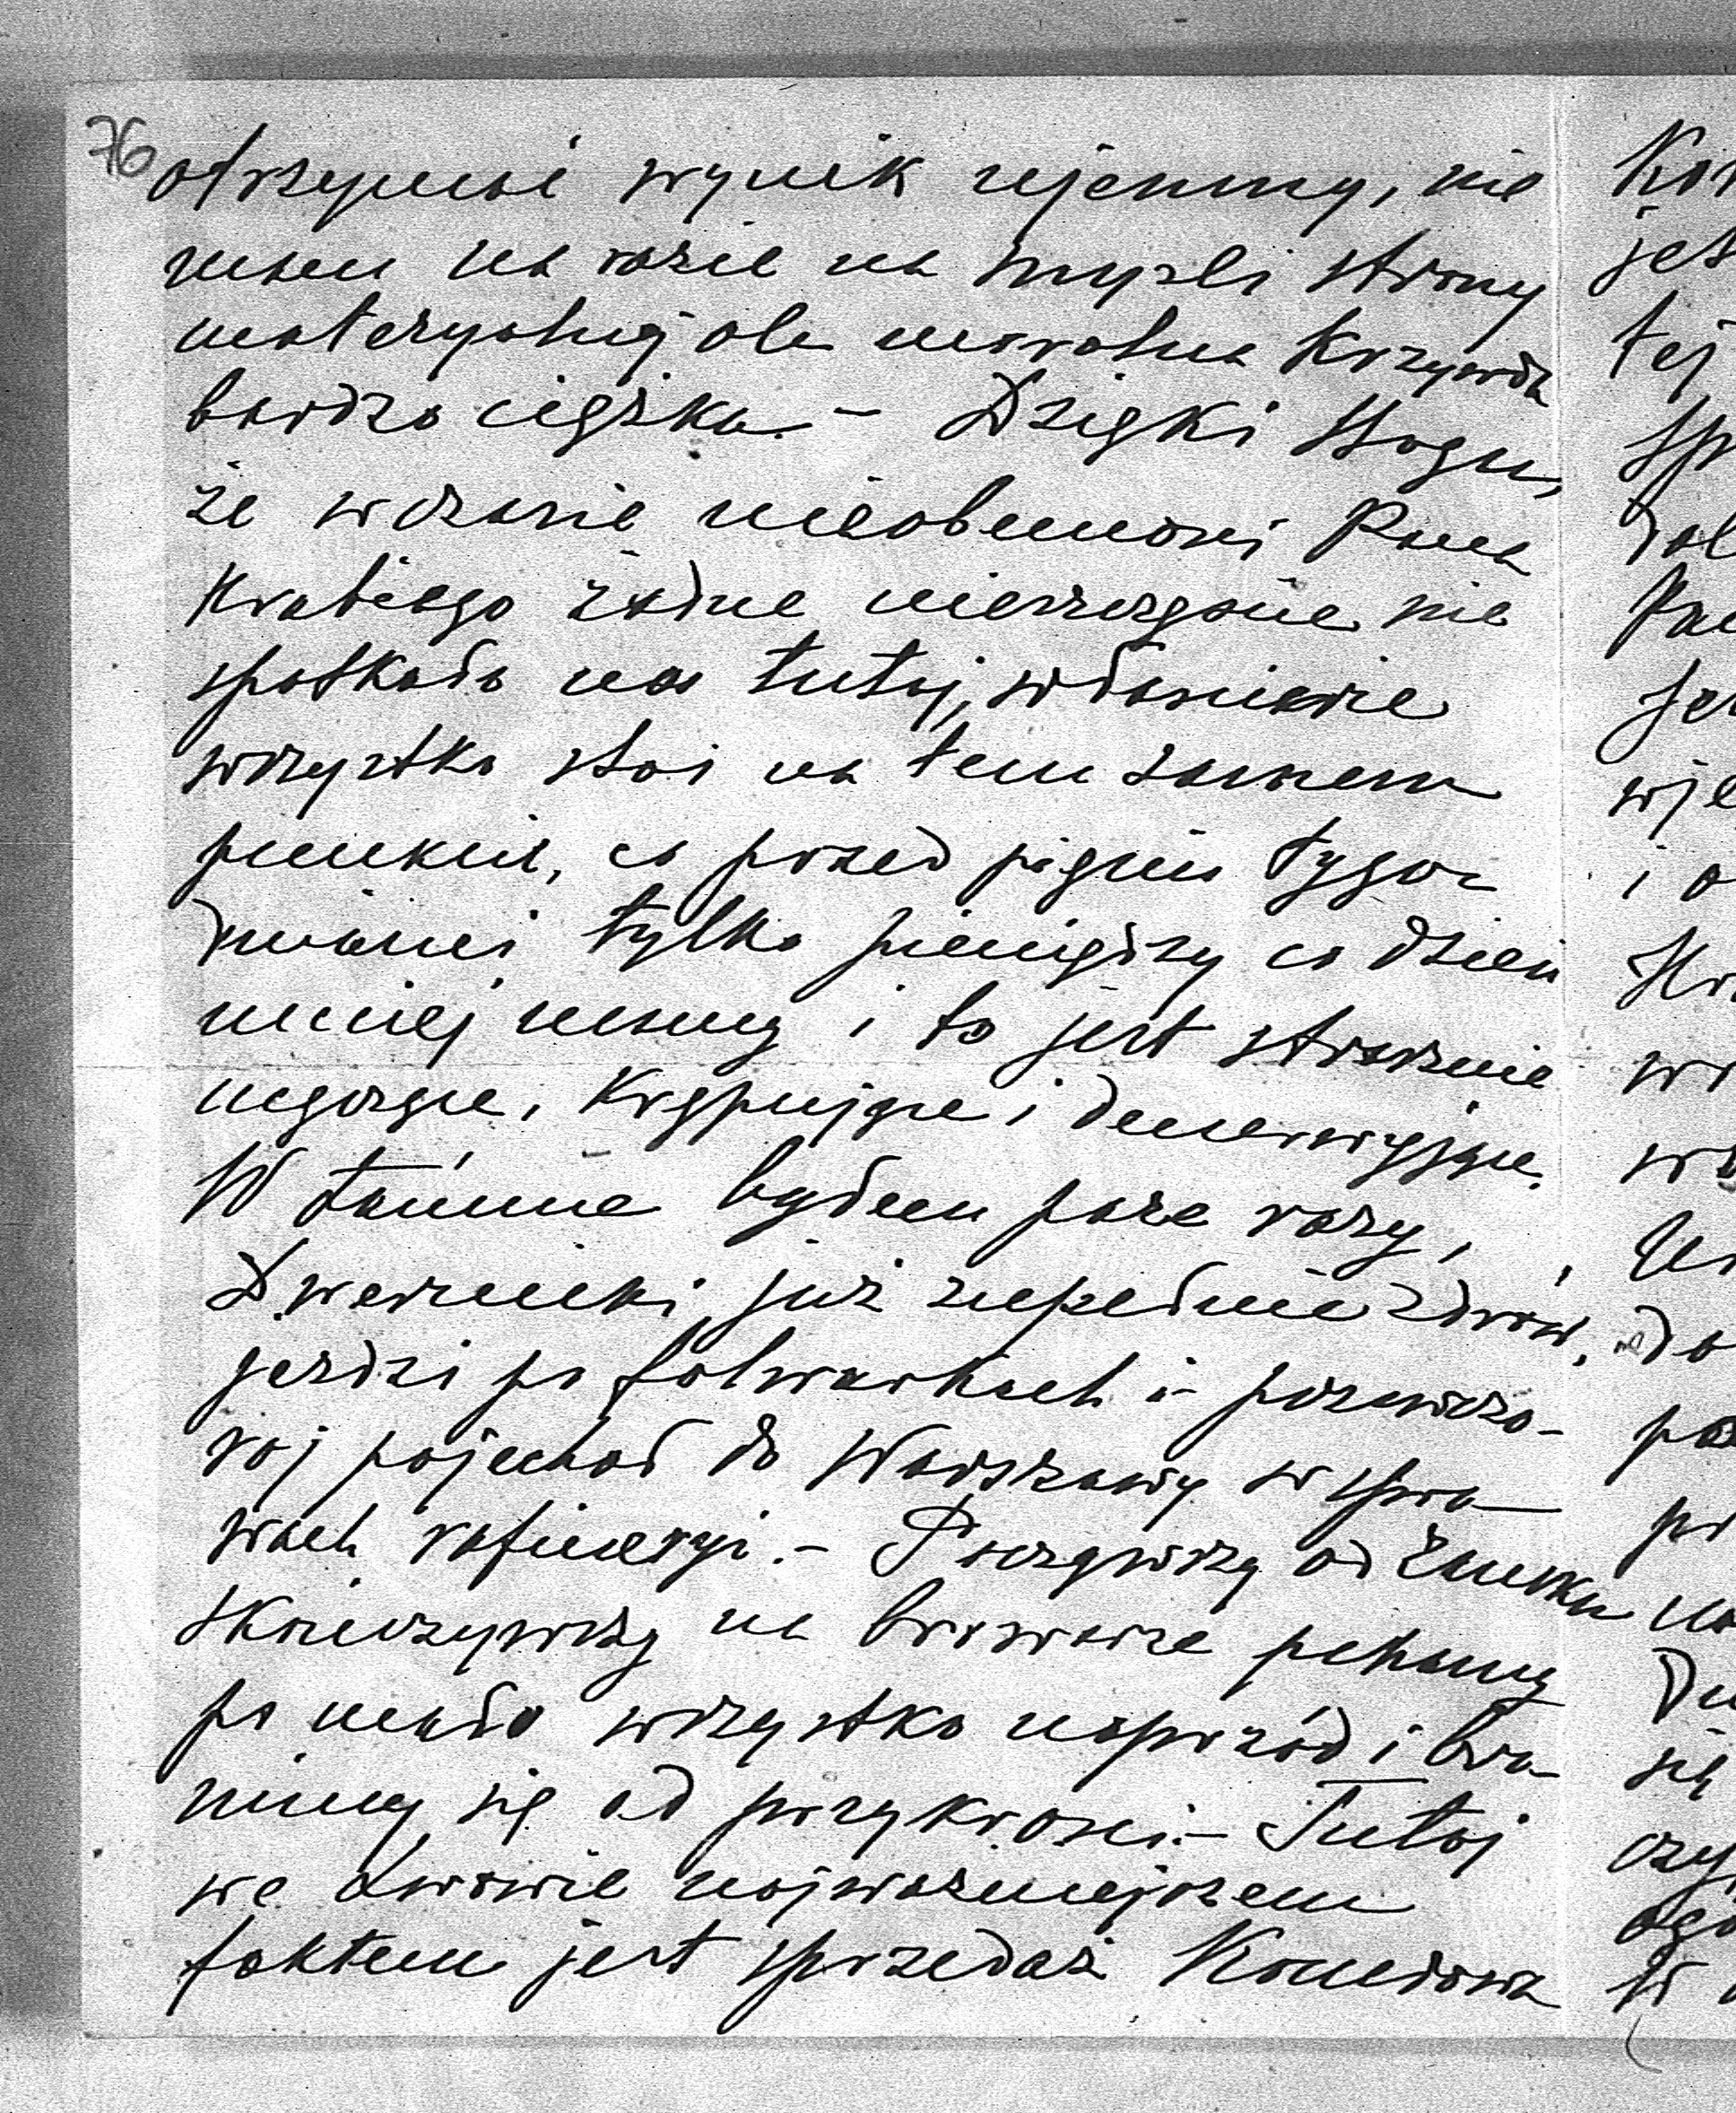 76
otrzymać wynik ujemny, nie
mam na razie na myśli strony
materyalnej ale moralna krzywda
bardzo ciężka. - Dzięki Bogu,
że w czasie nieobecności Pana
Hrabiego żadne nieszczęście nie
spotkało nas tutaj, właściwie
wszystko stoi na tem samem
punkcie, co przed pięciu tygo-
dniami tylko pieniędzy co dzień
mniej mamy i to jest strasznie
męczące, krępujące i denerwujące.
W Łańcucie byłem parę razy,
Dwernicki już zupełnie zdrów,
jeździ po folwarkach i przedwczo-
raj pojechał do Warszawy w spra-
wach rafineryi. - Począwszy od Zamku
skończywszy na browarze pchamy
po mału wszystko naprzód i bro-
nimy się od przykrości. - Tutaj
we Lwowie najważniejszem
faktem jest sprzedaż Komarowa
Kom
jes
tej
sp
Pan
wje
i o
Hr
wr
do
pr
się
czy
W